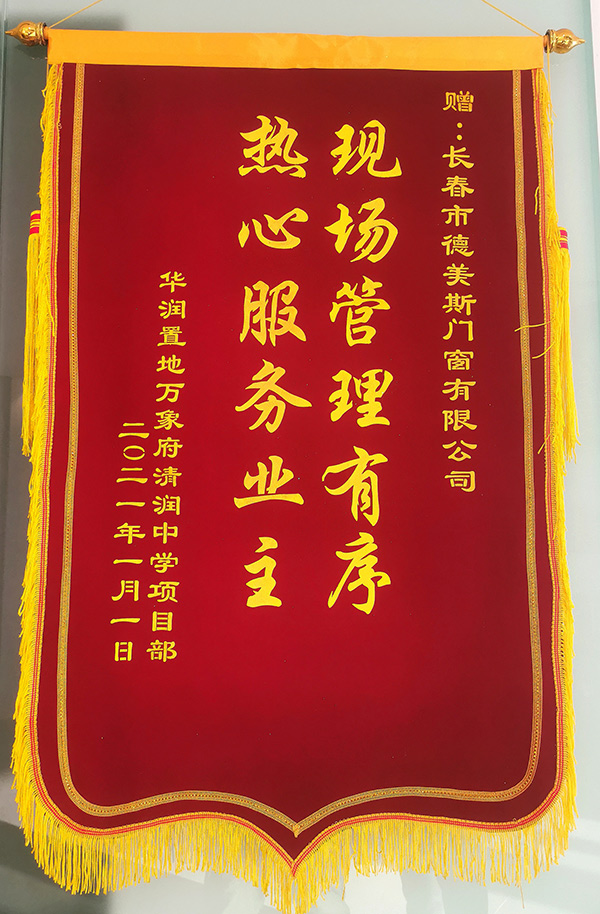 赠：长春市德美斯门窗有限公司
现场管理有序
热心服务业主
华润置地万象府清润中学项目部
二〇二一年一月一日